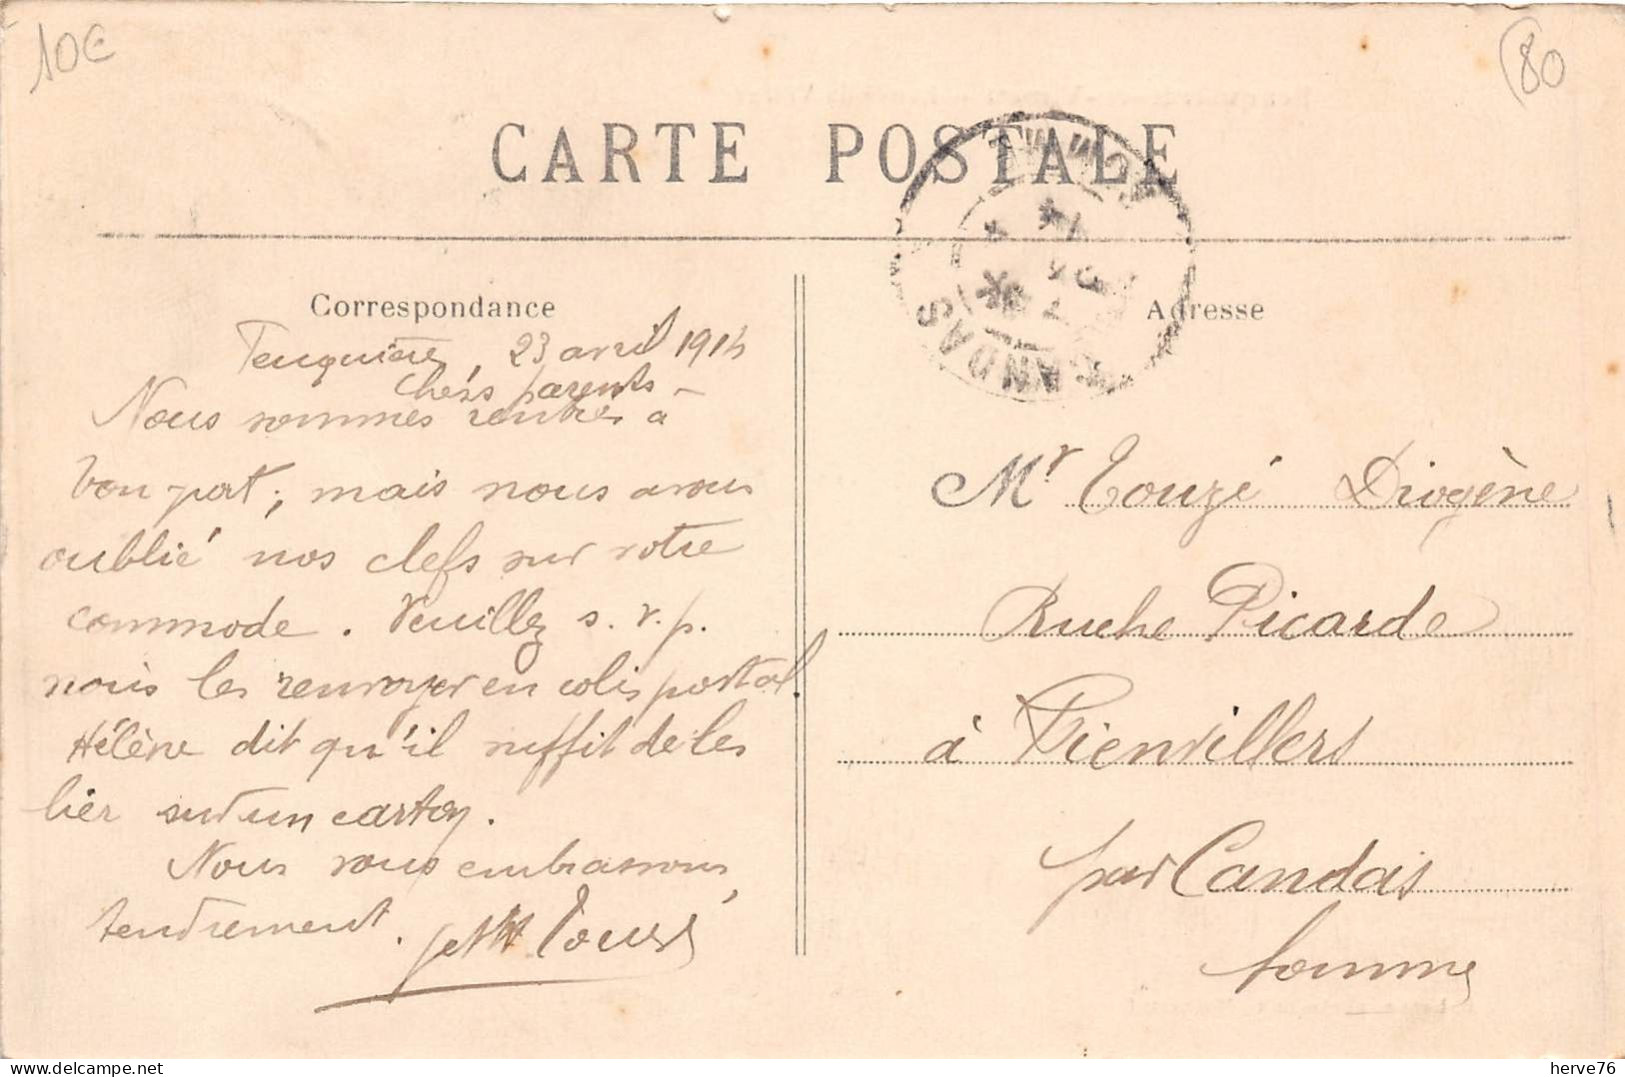 10€
80
CARTE POSTALE
CANDAS
Correspondance
Adresse
23 avril 1914
Chers parents -
Nous sommes rentrés à
bon port, mais nous avons
oublié nos clefs sur votre
commode. Veuillez s.v.p.
nous les renvoyer en colis postal.
Hélène dit qu'il suffit de les
lier sur un carton.
Nous vous embrassons
tendrement.
Mr Touzé Diogène
Ruche Picarde
à Fienvillers
par Candas
Somme
herve76